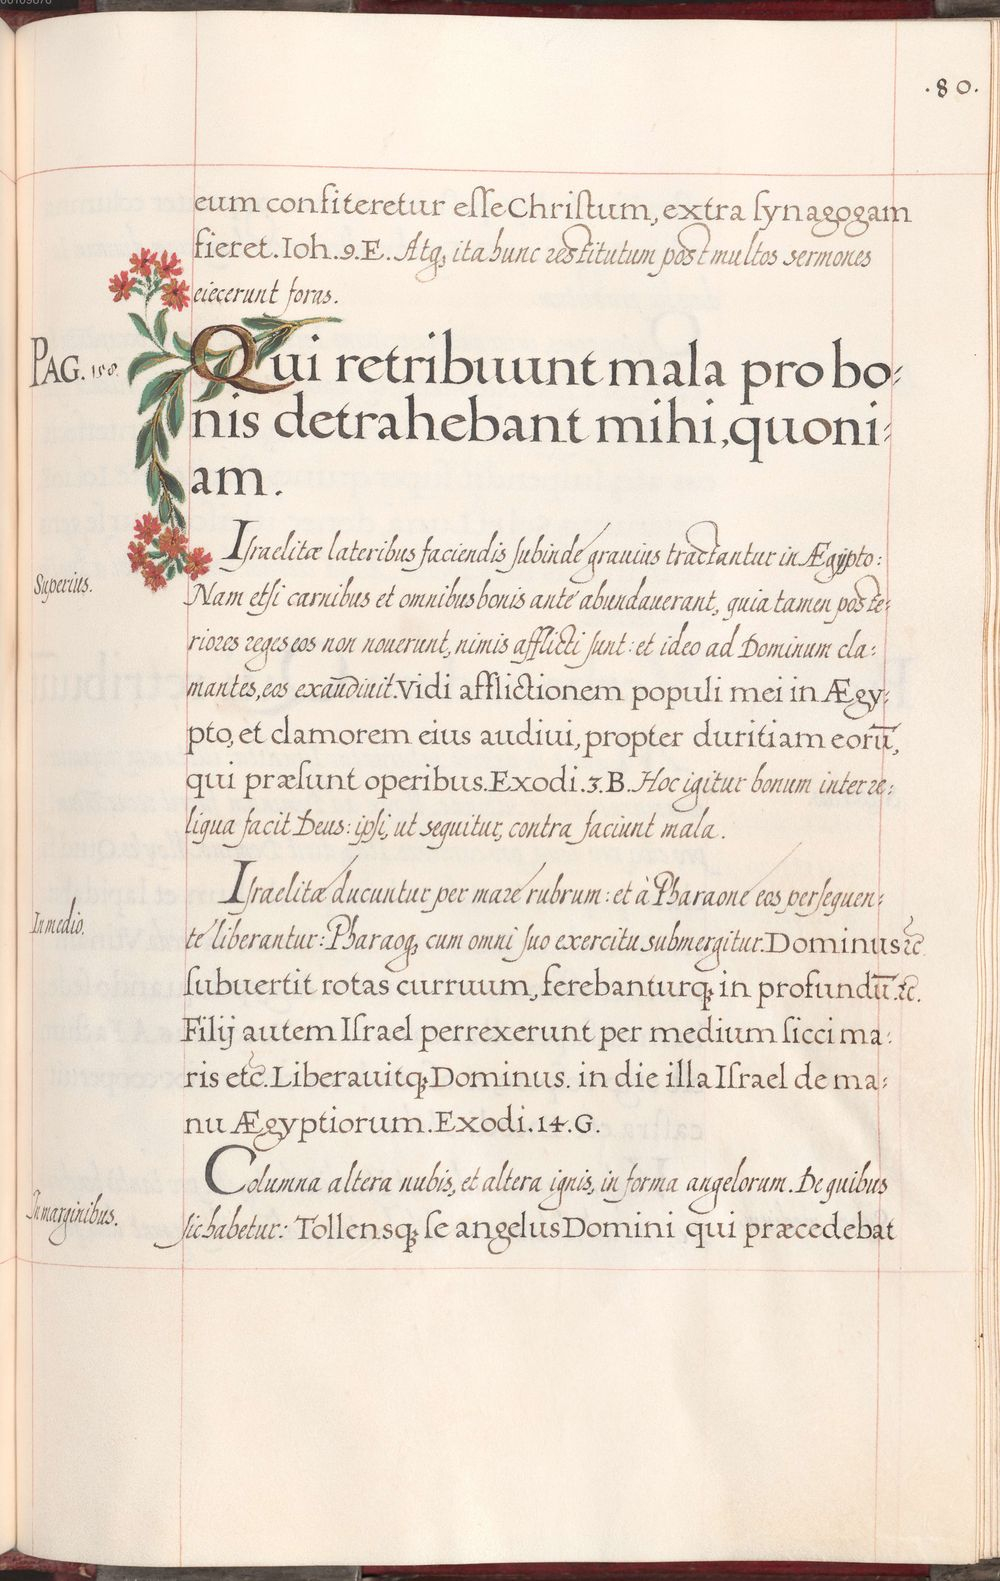 .80.
eum confiteretur eſſe Chriſtum, extra ſynagogam
fieret. Ioh. 9. E. Atq; ita hunc restitutum post multos sermones
eiecerunt foras.
PAG. 158.
Qui retribuunt mala pro bo⸗
nis detrahebant mihi, quoni⸗
am.
Iſraelitæ lateribus faciendis ſubinde grauius tractantur in Ægypto:
Superius.
Nam etſi carnibus et omnibus bonis ante abundauerant, quia tamen poste⸗
riores reges eos non nouerunt, nimis afflicti ſunt: et ideo ad Dominum cla⸗
mantes, eos exaudiuit. Vidi afflictionem populi mei in Ægy⸗
pto, et clamorem eius audiui, propter duritiam eorū,
qui præſunt operibus. Exodi. 3. B. Hoc igitur bonum inter re⸗
liqua facit Deus: ipſi, ut sequitur, contra faciunt mala.
Iſraelitæ ducuntur per mare rubrum: et à Pharaone eos perſequen⸗
In medio.
te liberantur: Pharaoq; cum omni ſuo exercitu submergitur. Dominus ꝛc.
ſubuertit rotas curruum, ferebanturq; in profundū. ꝛc.
Filij autem Iſrael perrexerunt per medium ſicci ma⸗
ris etc. Liberauitq; Dominus. in die illa Iſrael de ma⸗
nu Ægyptiorum. Exodi. 14. G.
Columna altera nubis, et altera ignis, in forma angelorum. De quibus
In marginibus.
ſic habetur: Tollensq; ſe angelus Domini qui præcedebat